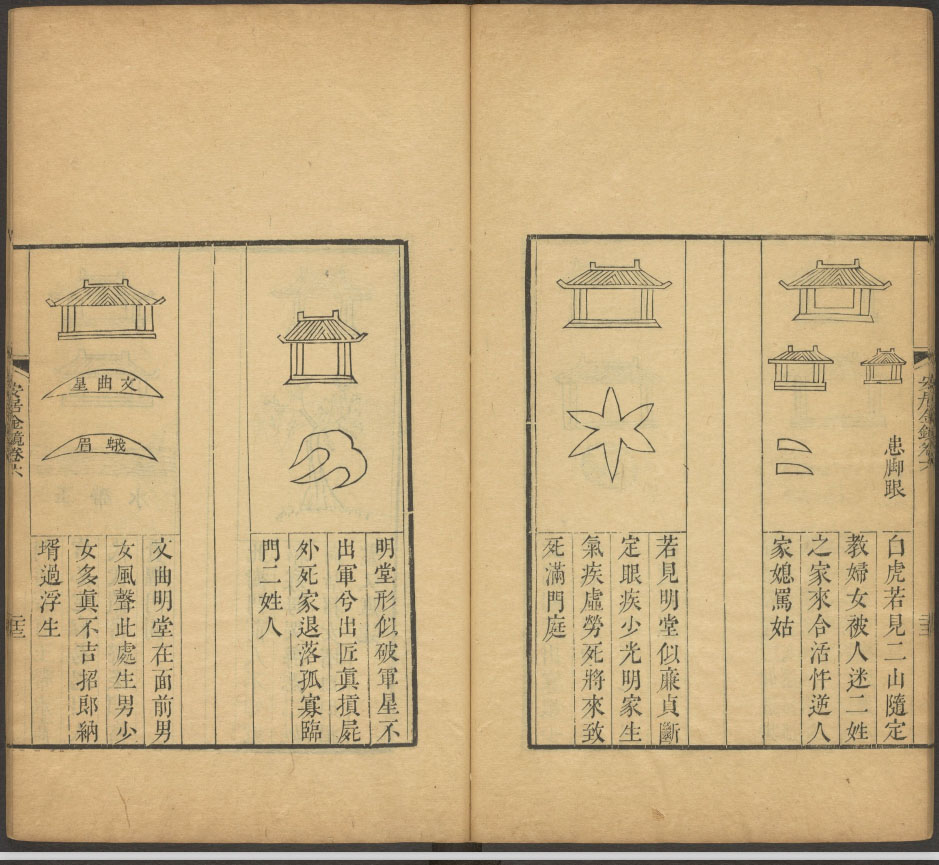 患脚眼
白虎若見二山隨定
教婦女被人迷二姓
之家來合活忤逆人
家媳罵姑
若見明堂似廉貞斷
定眼疾少光明家生
氣疾虛勞死將來致
死滿門庭
明堂形似破軍星不
出軍兮出匠眞摃屍
外死家退落孤寡臨
門二姓人
文曲星
蛾眉
文曲明堂在面前男
女風聲此處生男少
女多眞不吉招郎納
壻過浮生
安居金鏡卷六